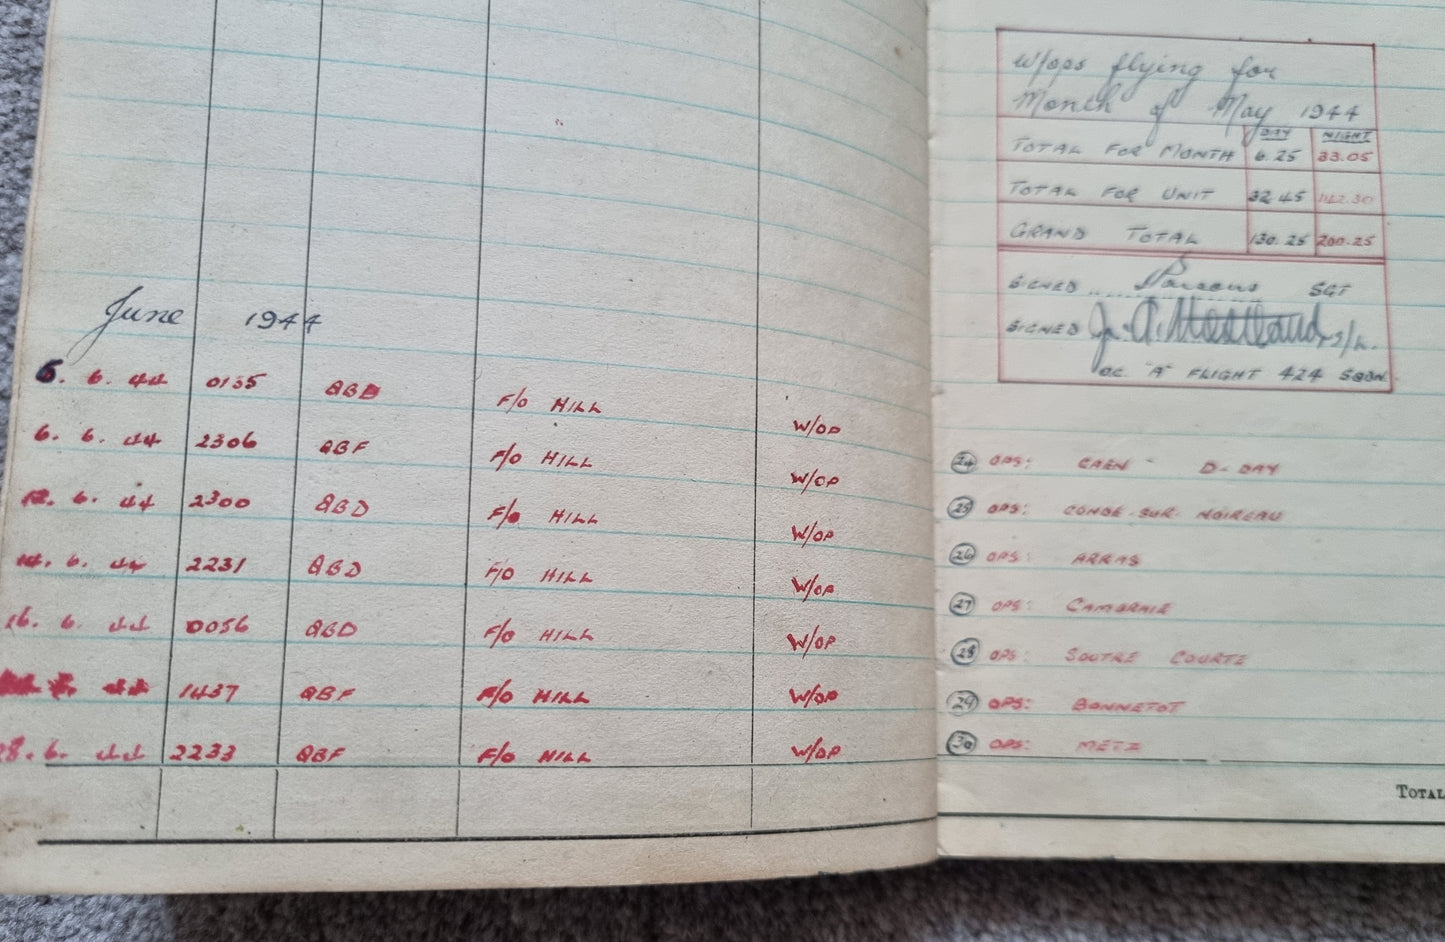 June 1944
6. 6. 44 0135 QBD F/O HILL W/OP
6. 6. 44 2306 QBF F/O HILL W/OP
12. 6. 44 2300 QBD F/O HILL W/OP
14. 6. 44 2231 QBD F/O HILL W/OP
16. 6. 44 0056 QBD F/O HILL W/OP
44 1437 QBF F/O HILL W/OP
28. 6. 44 2233 QBF F/O HILL W/OP
W/ops flying for
Month of May 1944
DAY NIGHT
TOTAL FOR MONTH 6.25 33.05
TOTAL FOR UNIT 32.45 142.30
GRAND TOTAL 130.25 200.25
SIGNED Parsons SGT
SIGNED S/L.
OC. "A" FLIGHT 424 SQDN
24 OPS: CAEN - D-DAY
25 OPS: CONDE-SUR-NOIREAU
26 OPS: ARRAS
27 OPS: CAMBRAIE
28 OPS: SOUTRE COURTE
29 OPS: BONNETOT
30 OPS: METZ
TOTAL